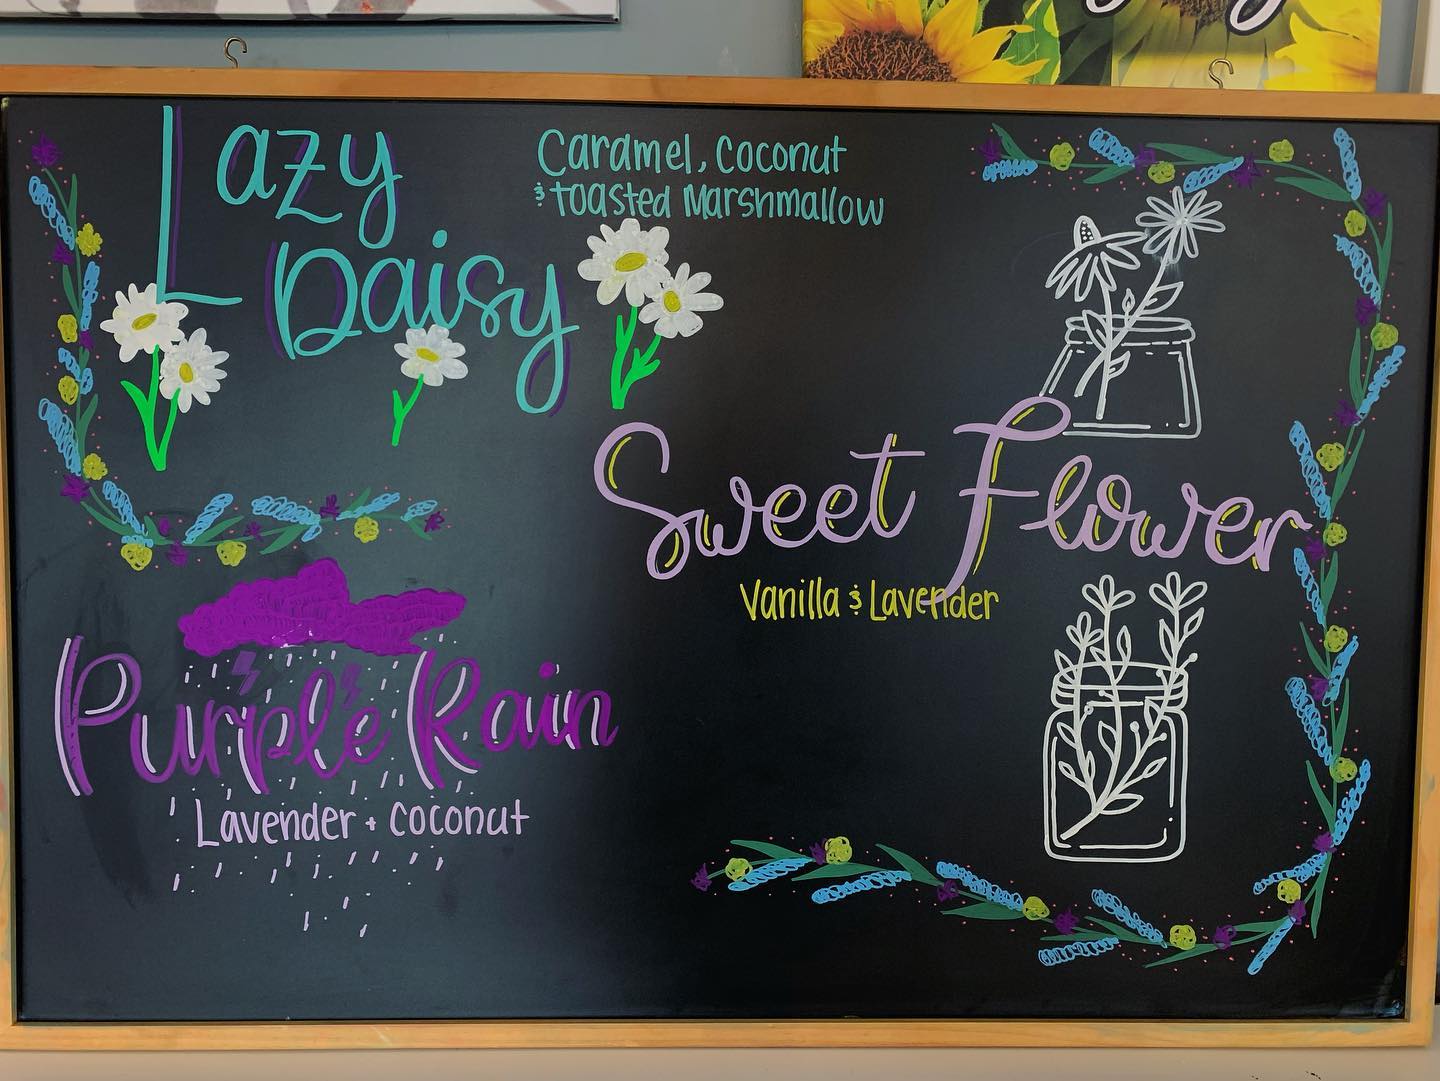 Lazy
Daisy
Caramel, Coconut
& toasted Marshmallow
Sweet Flower
Vanilla & Lavender
Purple Rain
Lavender + coconut